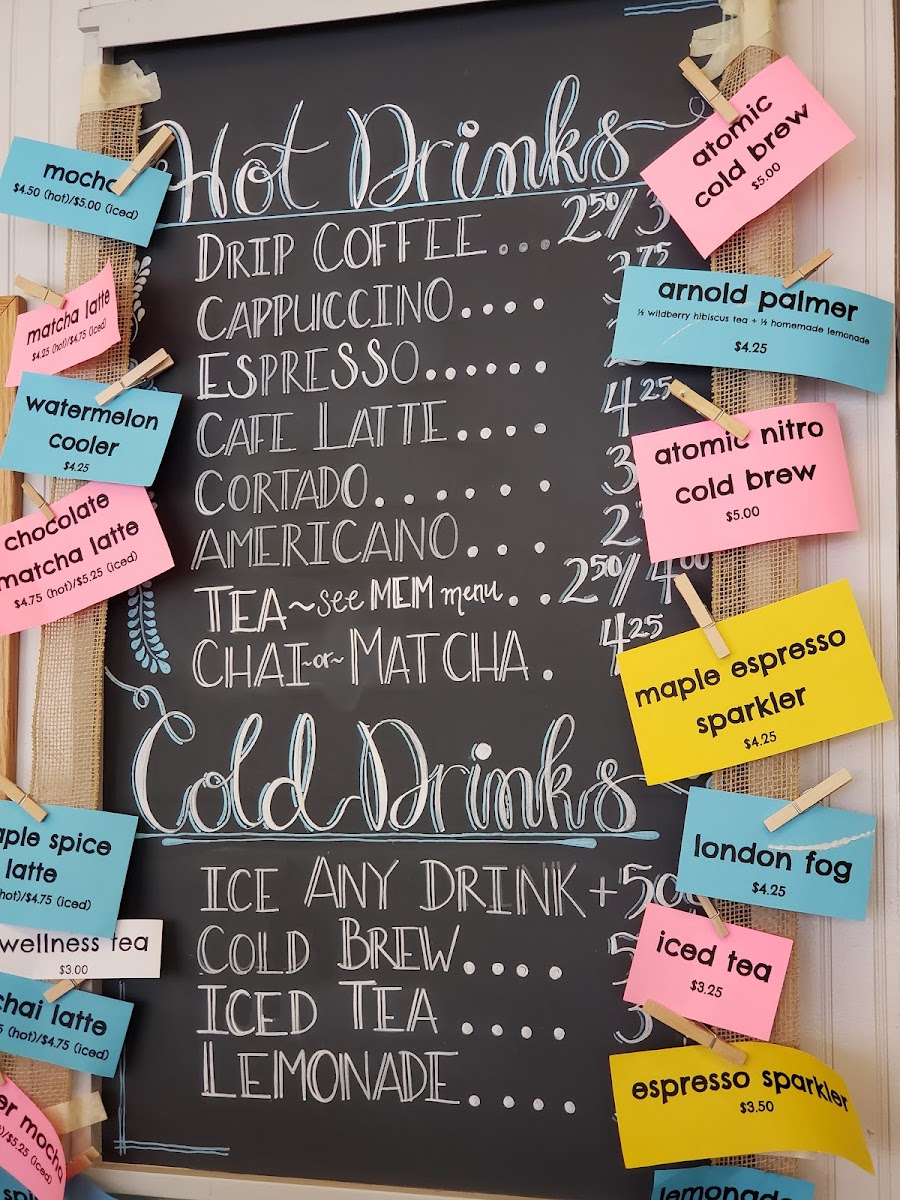 Hot Drinks
DRIP COFFEE... 2⁵⁰/3
CAPPUCCINO.... 3⁷⁵
ESPRESSO......
CAFE LATTE.... 4²⁵
CORTADO....... 3
AMERICANO... 2
TEA~see MEM menu.. 2⁵⁰/4⁰⁰
CHAI~or~MATCHA. 4²⁵
Cold Drinks
ICE ANY DRINK +50
COLD BREW.... 5
ICED TEA .... 3
LEMONADE....
mocha
$4.50 (hot)/$5.00 (iced)
matcha latte
$4.25 (hot)/$4.75 (iced)
watermelon
cooler
$4.25
chocolate
matcha latte
$4.75 (hot)/$5.25 (iced)
aple spice
latte
hot)/$4.75 (iced)
wellness tea
$3.00
chai latte
5 (hot)/$4.75 (iced)
er mocha
)/$5.25 (iced)
spi
atomic
cold brew
$5.00
arnold palmer
½ wildberry hibiscus tea + ½ homemade lemonade
$4.25
atomic nitro
cold brew
$5.00
maple espresso
sparkler
$4.25
london fog
$4.25
iced tea
$3.25
espresso sparkler
$3.50
lemonade